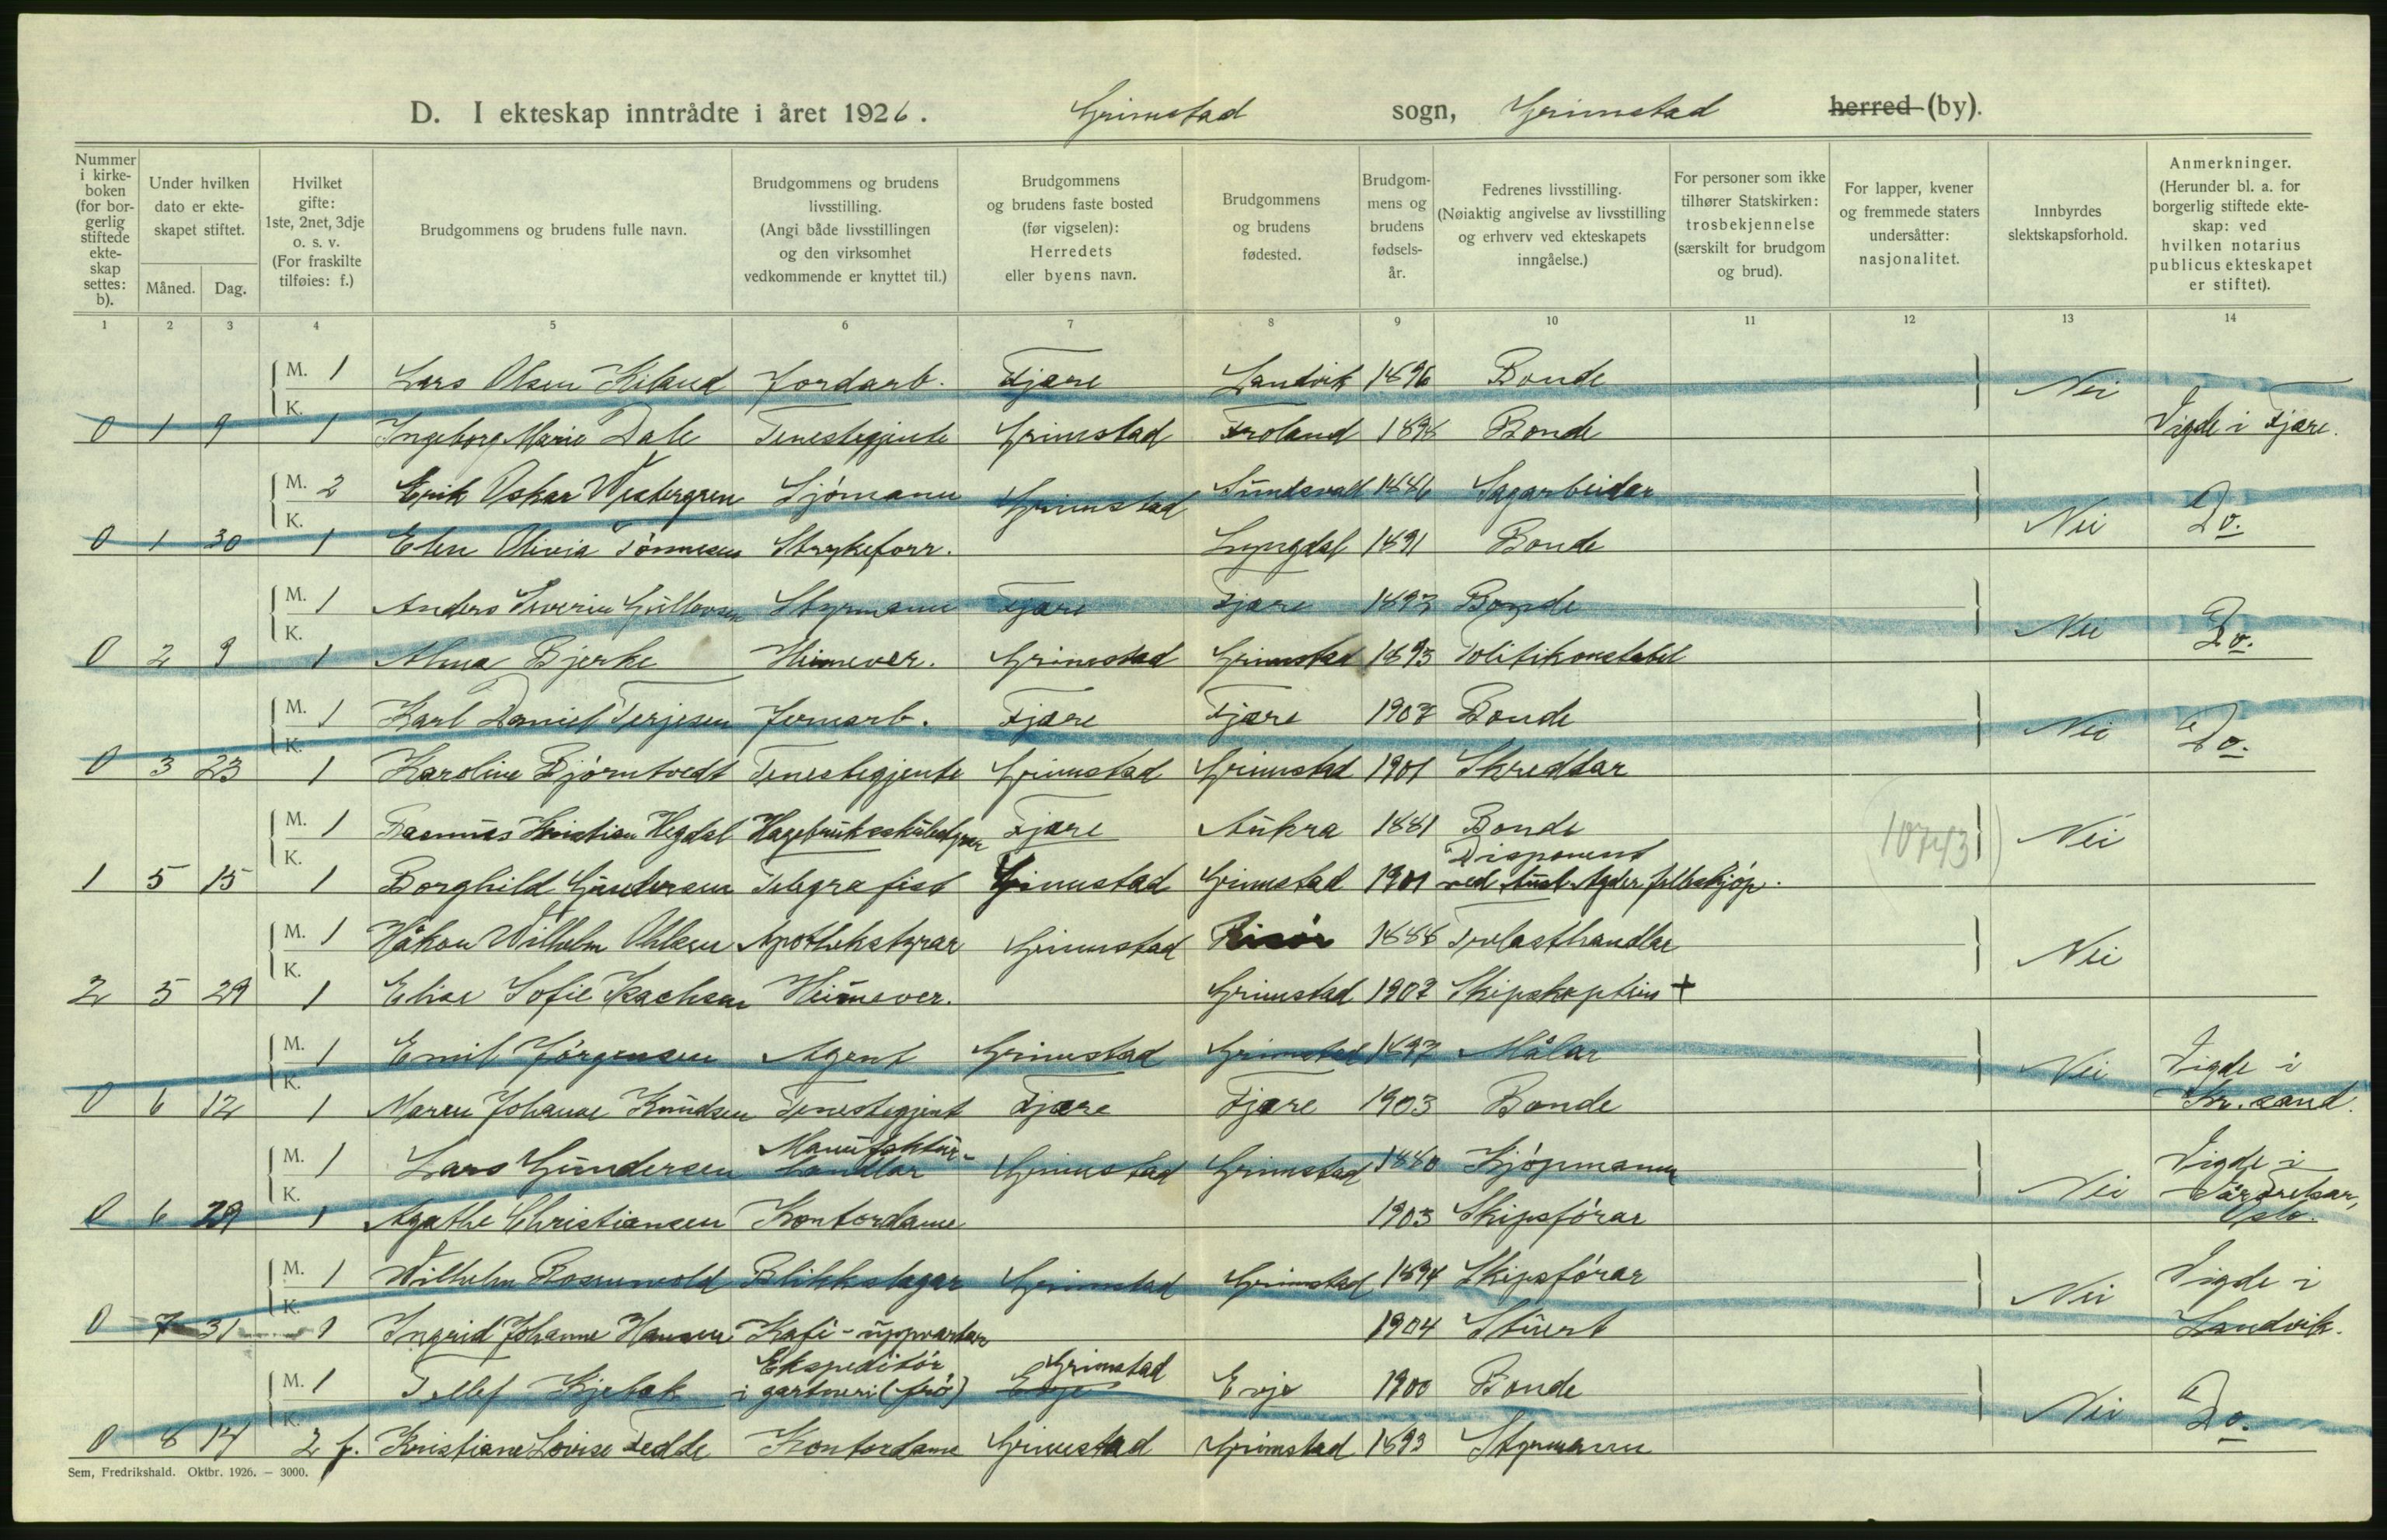 D. I ekteskap inntrådte i året 1926. Grimstad sogn, Grimstad herred (by).
Nummer i kirke-boken (for bor-gerlig stiftede ekte-skap settes: b).
Under hvilken dato er ekte-skapet stiftet.
Måned. Dag.
Hvilket gifte: 1ste, 2net, 3dje o. s. v. (For fraskilte tilføies: f.)
Brudgommens og brudens fulle navn.
Brudgommens og brudens livsstilling. (Angi både livsstillingen og den virksomhet vedkommende er knyttet til.)
Brudgommens og brudens faste bosted (før vigselen): Herredets eller byens navn.
Brudgommens og brudens fødested.
Brudgom-mens og brudens fødsels-år.
Fedrenes livsstilling. (Nøiaktig angivelse av livsstilling og erhverv ved ekteskapets inngåelse.)
For personer som ikke tilhører Statskirken: trosbekjennelse (særskilt for brudgom og brud).
For lapper, kvener og fremmede staters undersåtter: nasjonalitet.
Innbyrdes slektskapsforhold.
Anmerkninger. (Herunder bl. a. for borgerlig stiftede ekte-skap: ved hvilken notarius publicus ekteskapet er stiftet).
1 2 3 4 5 6 7 8 9 10 11 12 13 14
M. 1 Lars Olsen Kiland Jordarb. Fjære Landvik 1896 Bonde Nei
K.
0 1 9 1 Ingeborg Marie Dale Tenestegjente Grimstad Froland 1898 Bonde Vigde i Fjære.
M. 2 Erik Oskar Westergren Sjómann Grimstad Sundsvall 1886 Sagarbeidar Nei Do.
K.
0 1 30 1 Elen Olivia Tónnesen Strykeforr. Lyngdal 1891 Bonde
M. 1 Anders Severin Gullovsen Styrmann Fjære Fjære 1893 Bonde Nei Do.
K.
0 2 9 1 Alma Bjerke Heimever. Grimstad Grimstad 1893 Politikonstabel
M. 1 Karl Daniel Terjesen Jernarb. Fjære Fjære 1902 Bonde Nei Do.
K.
0 3 23 1 Karoline Bjórntvedt Tenestegjente Grimstad Grimstad 1901 Skreddar
M. 1 Rasmus Kristian Hegdal Fjære Aukra 1881 Bonde 10743 Nei
K.
Disponent
1 5 15 1 Borghild Gundersen Telegrafist Grimstad Grimstad 1901 ved Aust-Agder felleskjóp.
M. 1 Håkon Wilhelm Ohlsen Apothekstyrar Grimstad Risór 1888 Trelasthandlar Nei
K.
2 5 29 1 Elise Sofie Isachsen Heimever. Grimstad 1902 Skipskaptein +
M. 1 Emil Jórgensen Agent Grimstad Grimstad 1897 Målar Nei Vigde i
K.
0 6 12 1 Maren Johanne Knudsen Tenestegjent Fjære Fjære 1903 Bonde Kr.sand.
Manufaktur-
M. 1 Lars Gundersen handlar Grimstad Grimstad 1880 Kjópmann Nei Vigde i
K. Vår Frelsar,
0 6 29 1 Agathe Christiansen Kontordame 1903 Skipsfórar Oslo.
M. 1 Wilhelm Rosenvold Blikkslagar Grimstad Grimstad 1894 Skipsfórar Nei Vigde i
K.
0 7 31 1 Ingrid Johanne Hansen Kafé-uppvartar 1904 Stuert Landvik.
Ekspeditór Grimstad
M. 1 Tellef Kjetsk i gartneri (fró) Evje Evje 1900 Bonde Nei Do.
K.
0 8 14 2 f. Kristiane Lovise Fedde Kontordame Grimstad Grimstad 1893 Styrmann
Sem, Fredrikshald. Oktbr. 1926. — 3000.